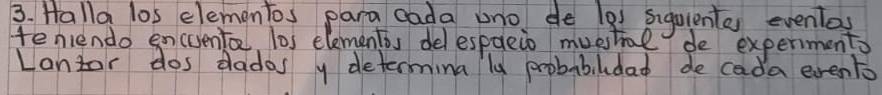 3. Halla los elementos para cada uno de los siguientes eventos
teniendo encuenta los elementos del espacio muestral de experimento
Lanzar dos dados y determina la probabilidad de cada evento